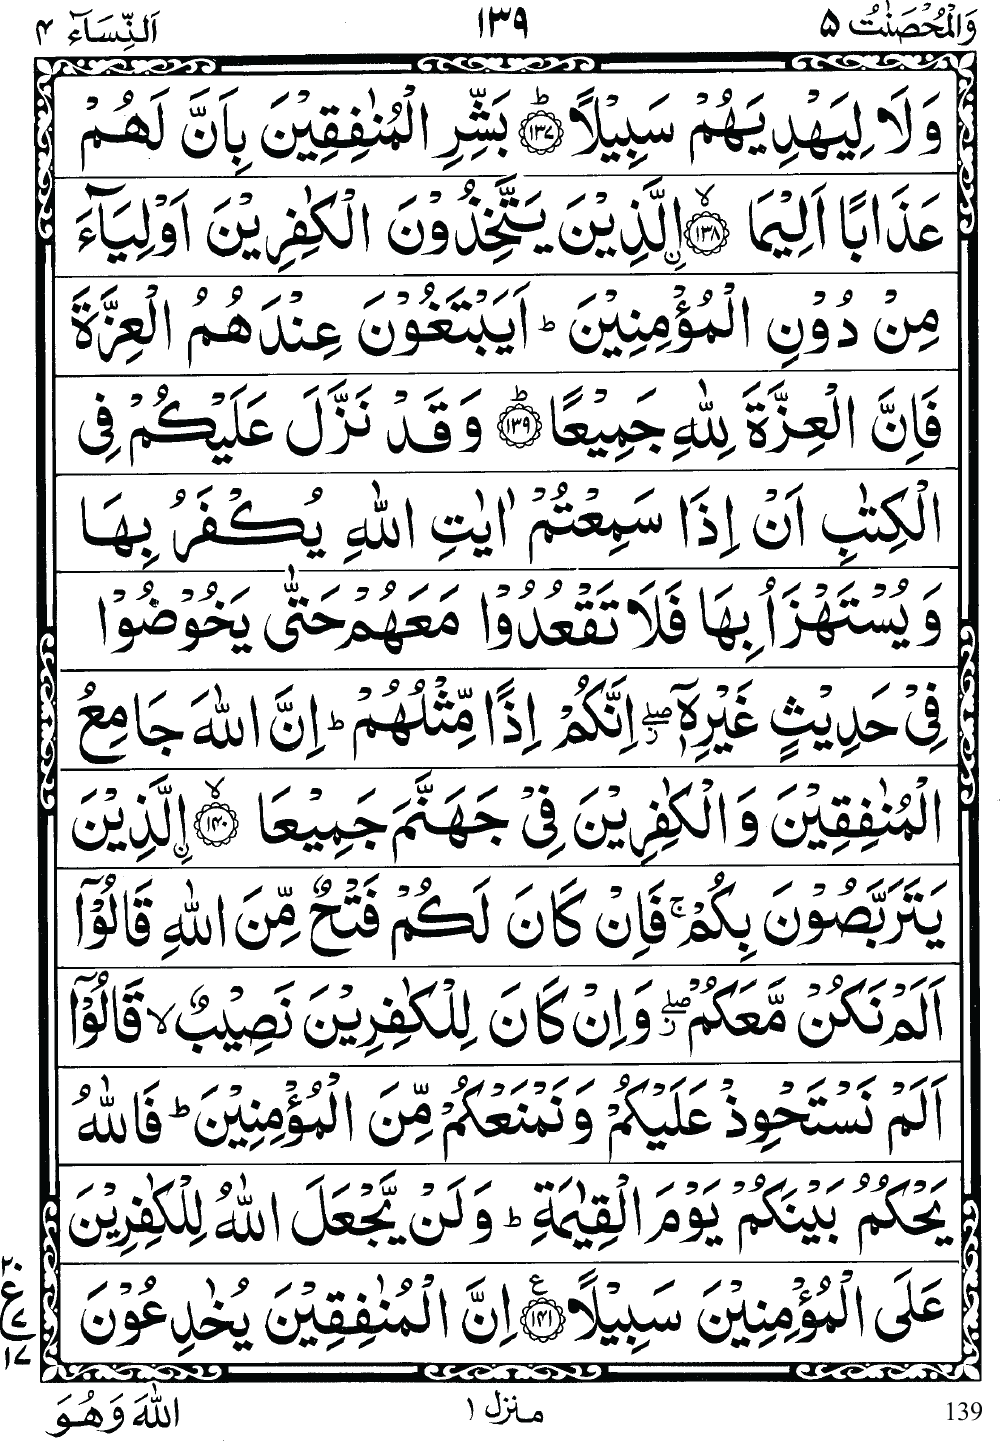 وَالْمُحْصَنٰتُ ۵ ۱۳۹ اَلنِّسَآء ۴
وَلَا لِيَهْدِيَهُمْ سَبِيْلًا ؕ‏ ﴿۱۳۷﴾ بَشِّرِ الْمُنٰفِقِيْنَ بِاَنَّ لَهُمْ
عَذَابًا اَلِيْمَا ۙ‏ ﴿۱۳۸﴾ اۨلَّذِيْنَ يَتَّخِذُوْنَ الْكٰفِرِيْنَ اَوْلِيَآءَ
مِنْ دُوْنِ الْمُؤْمِنِيْنَ ؕ اَيَبْتَغُوْنَ عِنْدَهُمُ الْعِزَّةَ
فَاِنَّ الْعِزَّةَ لِلّٰهِ جَمِيْعًا ؕ‏ ﴿۱۳۹﴾ وَقَدْ نَزَّلَ عَلَيْكُمْ فِى
الْكِتٰبِ اَنْ اِذَا سَمِعْتُمْ اٰيٰتِ اللّٰهِ يُكْفَرُ بِهَا
وَيُسْتَهْزَاُ بِهَا فَلَا تَقْعُدُوْا مَعَهُمْ حَتّٰى يَخُوْضُوْا
فِىْ حَدِيْثٍ غَيْرِهٖۤ ۖ اِنَّكُمْ اِذًا مِّثْلُهُمْ ؕ اِنَّ اللّٰهَ جَامِعُ
الْمُنٰفِقِيْنَ وَالْكٰفِرِيْنَ فِىْ جَهَنَّمَ جَمِيْعَا ۙ‏ ﴿۱۴۰﴾ اۨلَّذِيْنَ
يَتَرَبَّصُوْنَ بِكُمْ ۚ فَاِنْ كَانَ لَكُمْ فَتْحٌ مِّنَ اللّٰهِ قَالُوْۤا
اَلَمْ نَكُنْ مَّعَكُمْ ۖ وَاِنْ كَانَ لِلْكٰفِرِيْنَ نَصِيْبٌ ۙ قَالُوْۤا
اَلَمْ نَسْتَحْوِذْ عَلَيْكُمْ وَنَمْنَعْكُمْ مِّنَ الْمُؤْمِنِيْنَ ؕ فَاللّٰهُ
يَحْكُمُ بَيْنَكُمْ يَوْمَ الْقِيٰمَةِ ؕ وَلَنْ يَّجْعَلَ اللّٰهُ لِلْكٰفِرِيْنَ
عَلَى الْمُؤْمِنِيْنَ سَبِيْلًا ﴿۱۴۱﴾ ع اِنَّ الْمُنٰفِقِيْنَ يُخٰدِعُوْنَ
۲۰
ع
۷
۱۷
139 منزل ۱ اللّٰهَ وَهُوَ